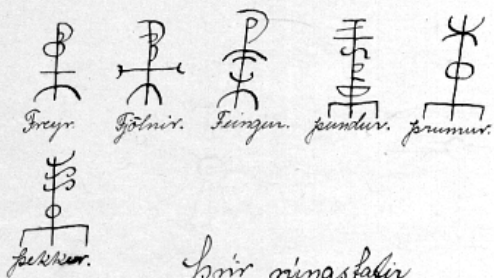 Freyr. Fjölnir. Feingur. Þundur. Þrumur.
Þekkur.
Þrír